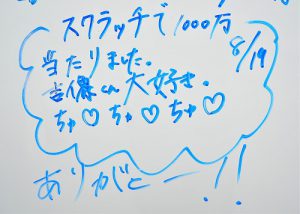 スクラッチで1000万
8/19
当たりました。
大好き。
ちゅ♡ちゅ♡ちゅ♡
ありがとー!!